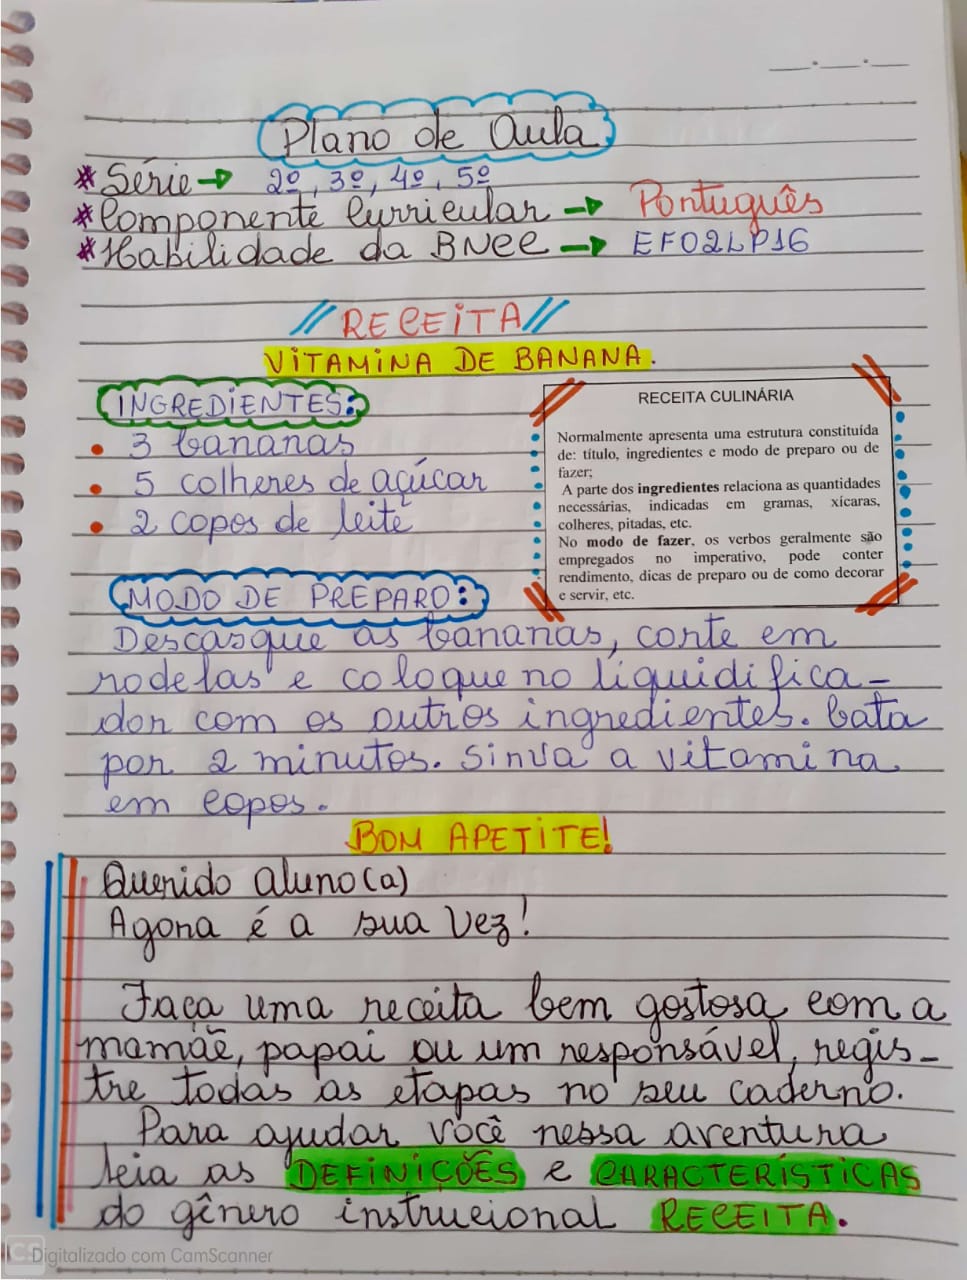 Plano de Aula
* Série → 2º, 3º, 4º, 5º
* Componente Curricular → Português
* Habilidade da BNCC → EF02LP16
// RECEITA //
VITAMINA DE BANANA.
INGREDIENTES:
• 3 bananas
• 5 colheres de açúcar
• 2 copos de leite
RECEITA CULINÁRIA
Normalmente apresenta uma estrutura constituída
de: título, ingredientes e modo de preparo ou de
fazer;
A parte dos ingredientes relaciona as quantidades
necessárias, indicadas em gramas, xícaras,
colheres, pitadas, etc.
No modo de fazer, os verbos geralmente são
empregados no imperativo, pode conter
rendimento, dicas de preparo ou de como decorar
e servir, etc.
MODO DE PREPARO:
Descasque as bananas, corte em
rodelas e coloque no liquidifica-
dor com os outros ingredientes. Bata
por 2 minutos. Sirva a vitamina
em copos.
BOM APETITE!
Querido aluno(a)
Agora é a sua vez!
Faça uma receita bem gostosa com a
mamãe, papai ou um responsável, regis-
tre todas as etapas no seu caderno.
Para ajudar você nessa aventura
leia as DEFINIÇÕES e CARACTERÍSTICAS
do gênero instrucional RECEITA.
CS Digitalizado com CamScanner